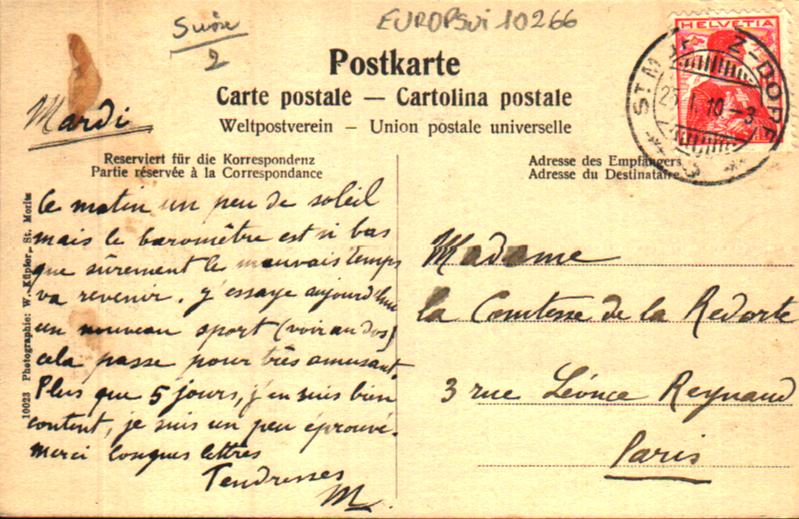 Suisse
2
EUROPSvi 10266
HELVETIA
ST. MORITZ-DORF
25. I. 10 -3
Postkarte
Carte postale — Cartolina postale
Weltpostverein - Union postale universelle
Mardi
Reserviert für die Korrespondenz
Partie réservée à la Correspondance
Adresse des Empfängers
Adresse du Destinataire
Ce matin un peu de soleil
mais le baromètre est si bas
que sûrement le mauvais temps
va revenir. J'essaye aujourd'hui
un nouveau sport (voir au dos)
cela passe pour très amusant.
Plus que 5 jours, j'en suis bien
content, je suis un peu éprouvé.
Merci longues lettres
Tendresses
M.
Madame
la Comtesse de la Redorte
3 rue Léonce Reynaud
Paris
10023 Photographie: W. Küpfer, St. Moritz